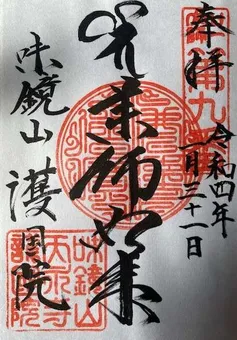 奉拝
令和四年
一月三十一日
薬師如来
味鏡山
護国院
味鏡山
天永寺
護国院